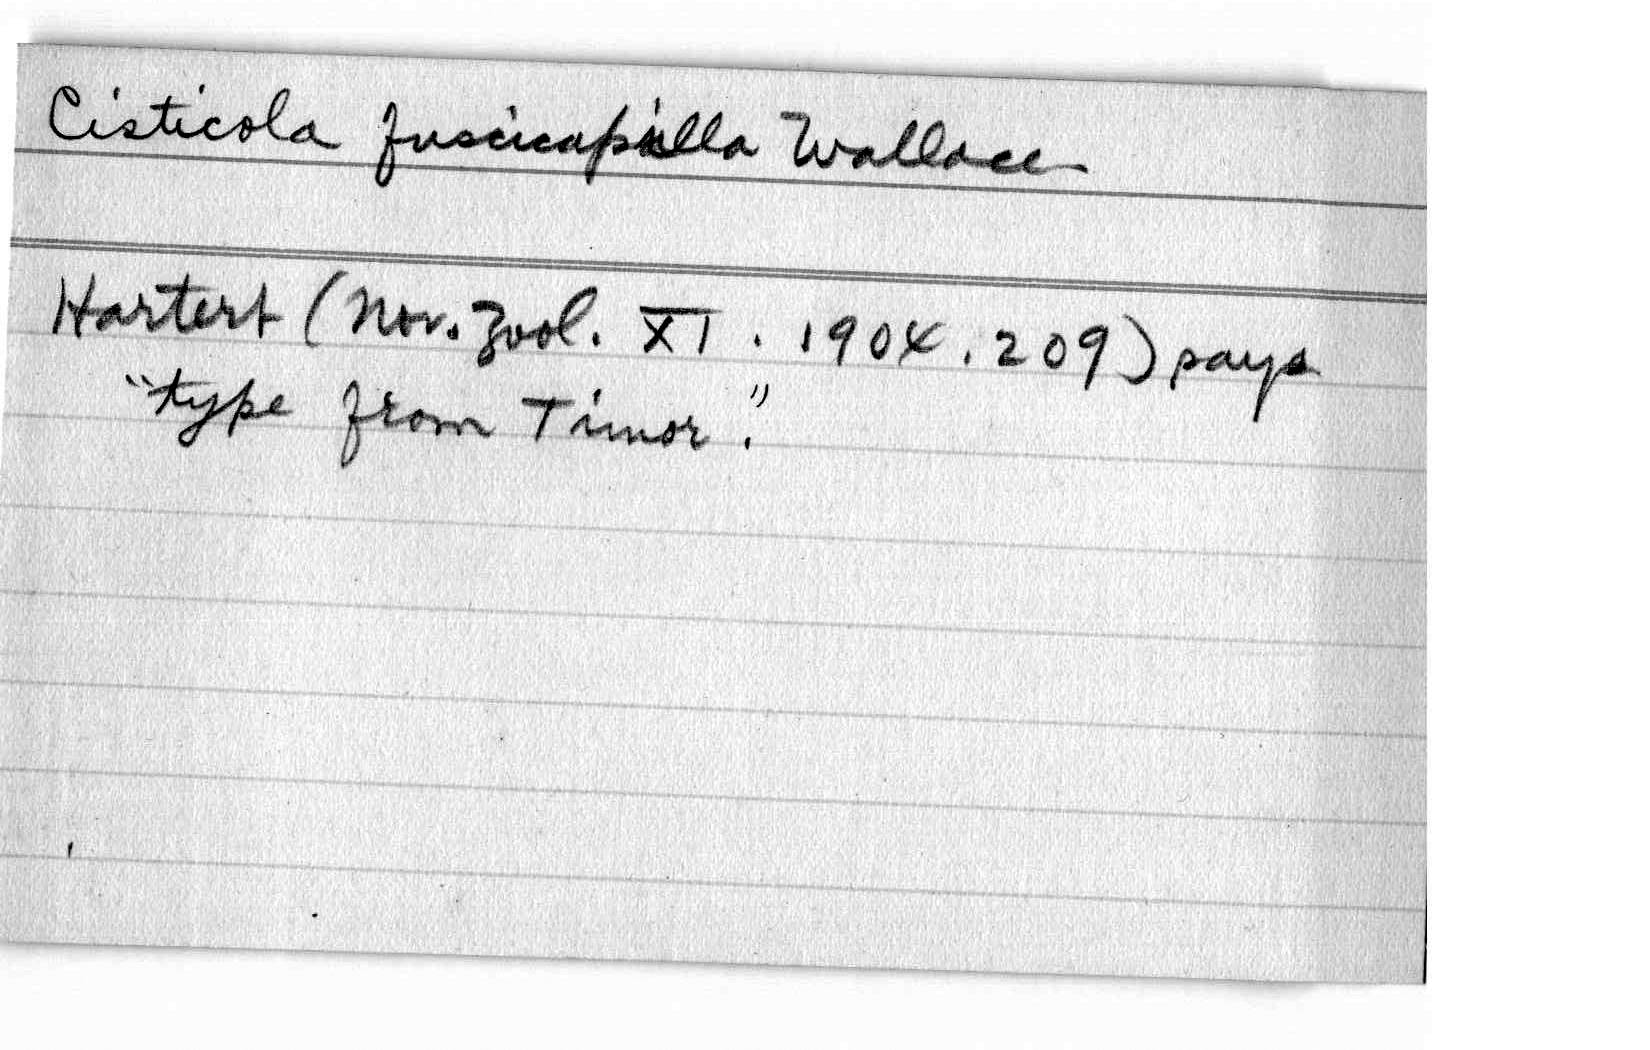 Cisticola fuscicapilla Wallace
Hartert (Nov. Zool. XI. 1904. 209) says
"type from Timor."